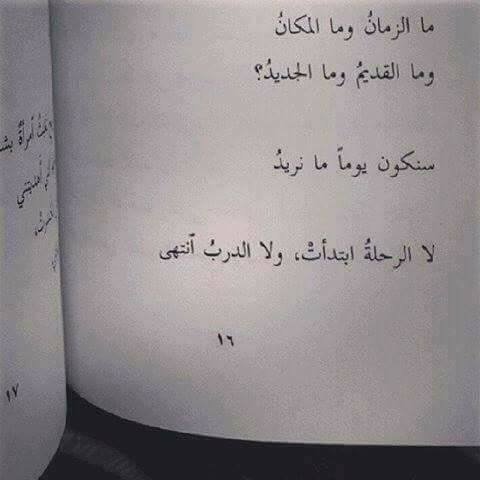 ما الزمانُ وما المكانُ
وما القديمُ وما الجديدُ؟
سنكون يوماً ما نريدُ
لا الرحلةُ ابتدأتْ، ولا الدربُ ٱنتهى
١٦
ٱمرأةٌ
١٧